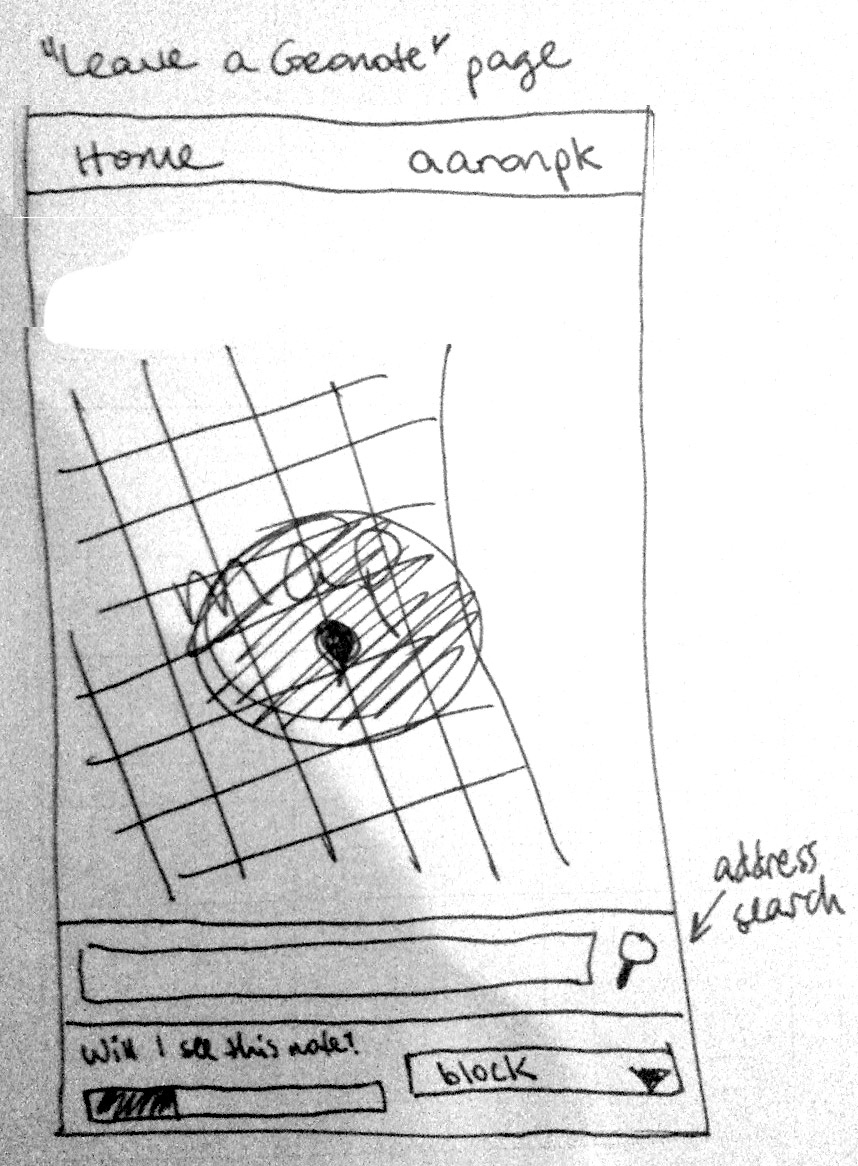 "Leave a Geonote" page
Home aaronpk
map
address
search
Will I see this note?
block